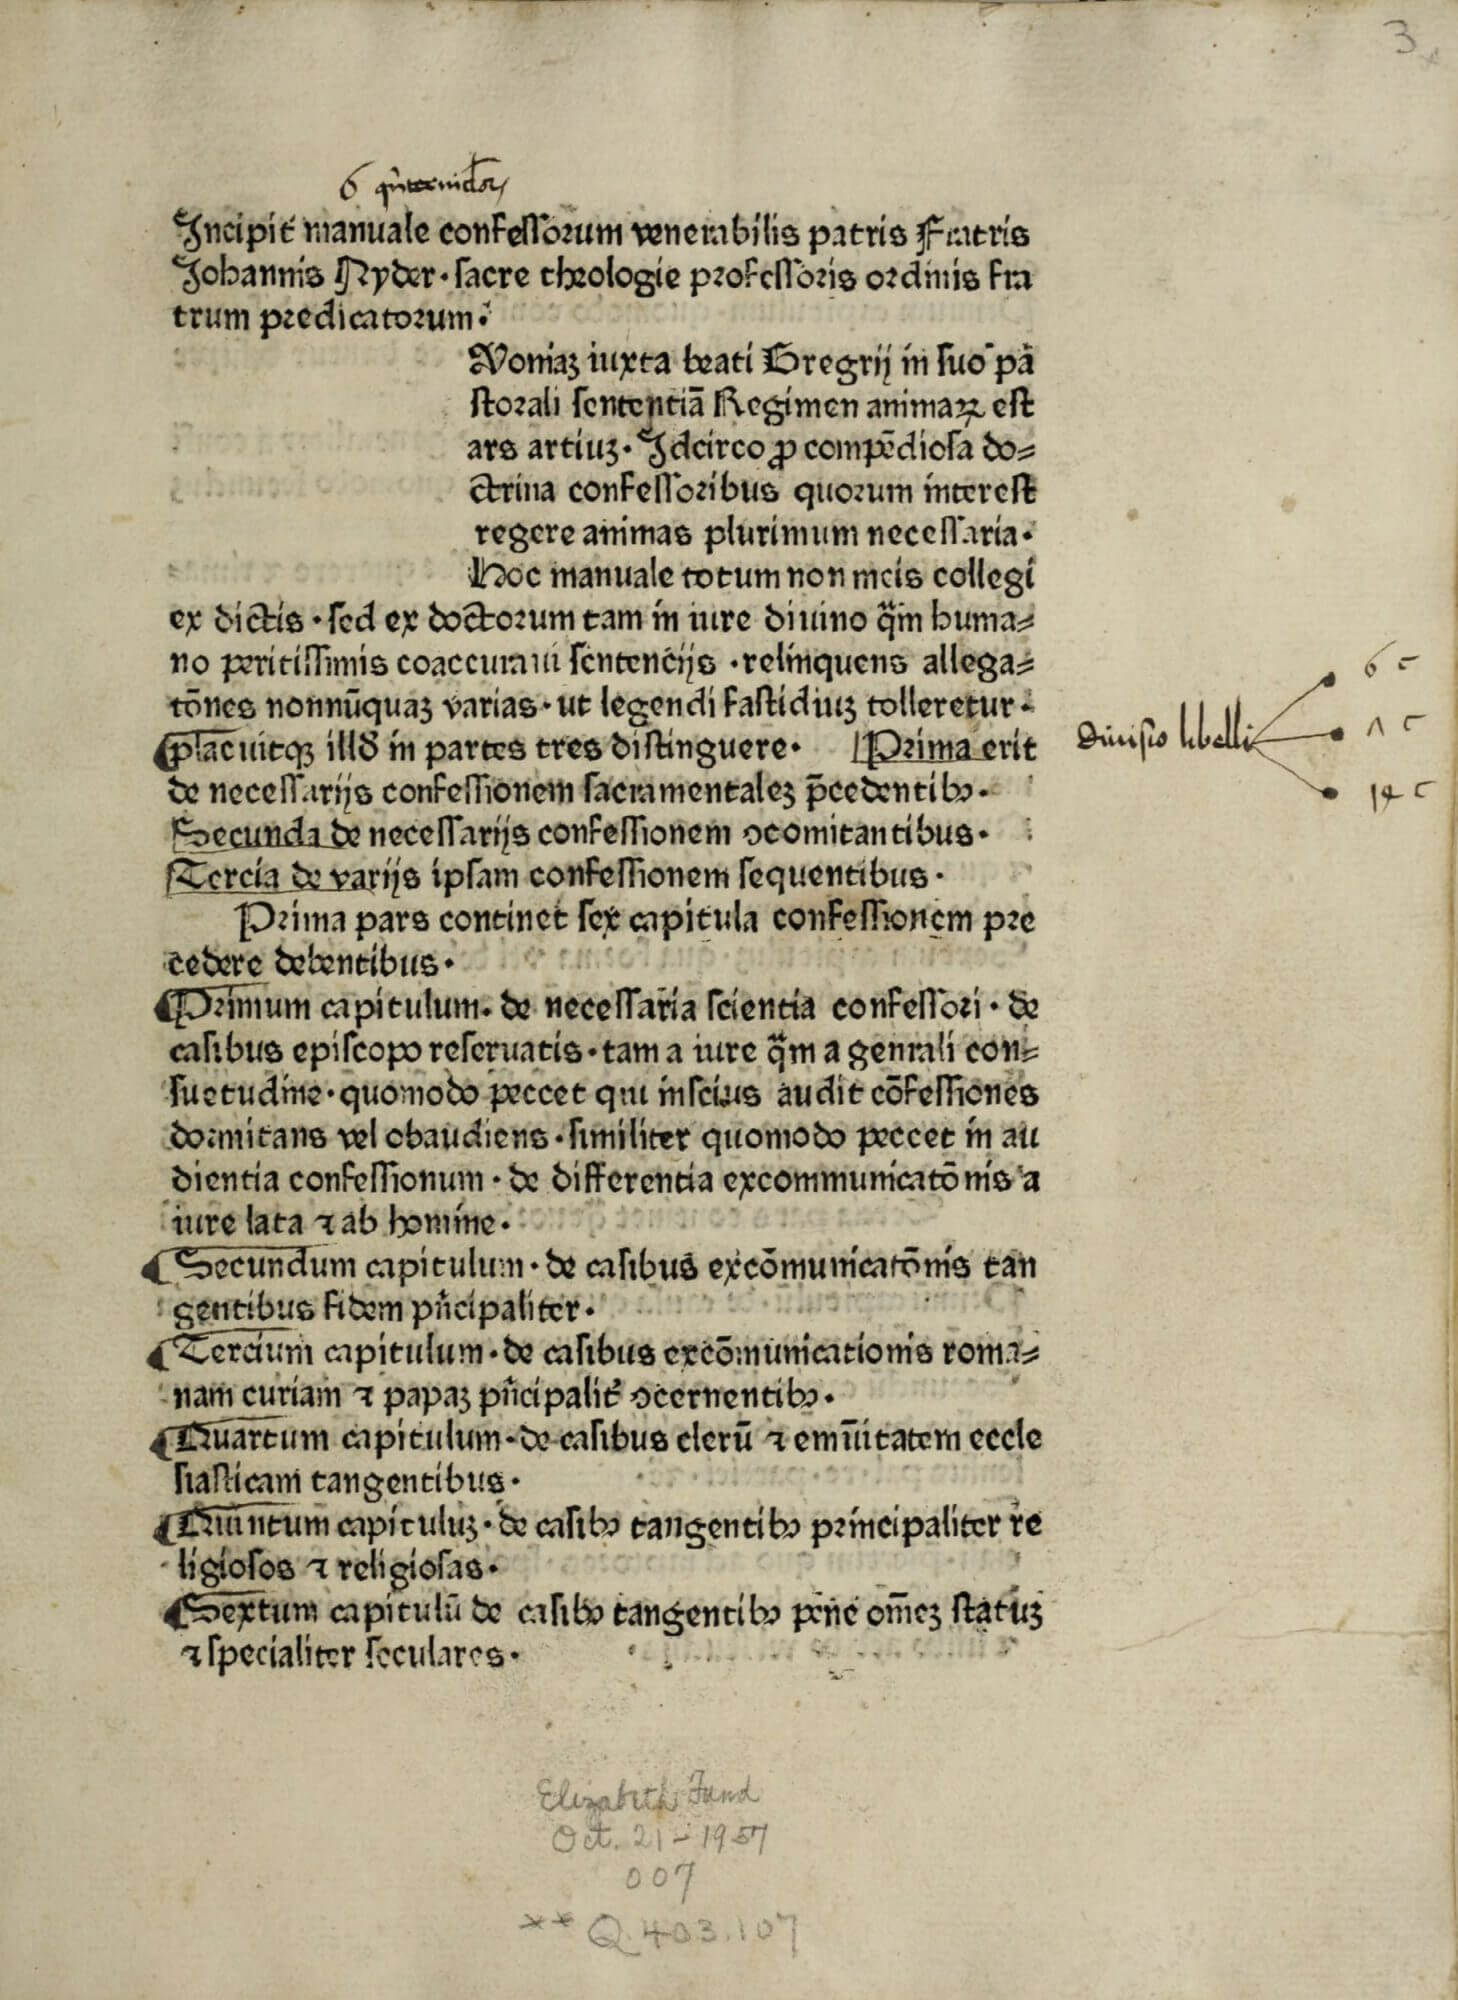 3
6
Incipit̉ manuale confeſſoꝛum venerabilis patris Fratris
Johannis Nyder · ſacre theologie pꝛofeſſoꝛis oꝛdinis fra
trum pꝛedicatoꝛum ·
Voniaꝫ iuxta beati Gregrij in ſuo pa
ſtoꝛali ſententiā Regimen animaꝝ eſt
ars artiuꝫ · Idcirco ꝓ compēdioſa do⸗
ctrina confeſſoꝛibus quoꝛum intereſt
regere animas plurimum neceſſaria ·
Hoc manuale totum non meis collegi
ex dictis · ſed ex doctoꝛum tam in iure diuino qm̄ huma⸗
no peritiſſimis coaccuraui ſentencijs · relinquens allega⸗
tōnes nonnūquaꝫ varias · ut legendi faſtidiuꝫ tolleretur ·
placuitqꝫ illd̓ in partes tres diſtinguere · Pꝛima erit
de neceſſarijs confeſſionem ſacramentaleꝫ p̄cedentibꝰ ·
Secunda de neceſſarijs confeſſionem ꝯcomitantibus ·
Tercia de varijs ipſam confeſſionem ſequentibus ·
Pꝛima pars continet ſex capitula confeſſionem pꝛe
cedere debentibus ·
Pꝛimum capitulum · de neceſſaria ſcientia confeſſoꝛi · de
caſibus epiſcopo reſeruatis · tam a iure qm̄ a genrali con⸗
ſuetudine · quomodo peccet qui inſcius audit cōfeſſiones
doꝛmitans vel obaudiens · ſimiliter quomodo peccet in au
dientia confeſſionum · de differentia excommunicatōnis a
iure lata ⁊ ab homine ·
Secundum capitulum · de caſibus excōmunicatōnis tan
gentibus fidem pn̄cipaliter ·
Tercium capitulum · de caſibus excōmunicationis roma⸗
nam curiam ⁊ papaꝫ pn̄cipalit̉ ꝯcernentibꝰ ·
Quartum capitulum · de caſibus clerū ⁊ emūitatem eccle
ſiaſticam tangentibus ·
Quintum capituluꝫ · de caſibꝰ tangentibꝰ pꝛincipaliter re
ligioſos ⁊ religioſas ·
Sextum capitulū de caſibꝰ tangentibꝰ pene om̄eꝫ ſtatuꝫ
⁊ ſpecialiter ſeculares ·
diuisio libelli
6 c
1 c
14 c
Elizabeth Fund
Oct. 21 - 1957
007
** Q.403.107